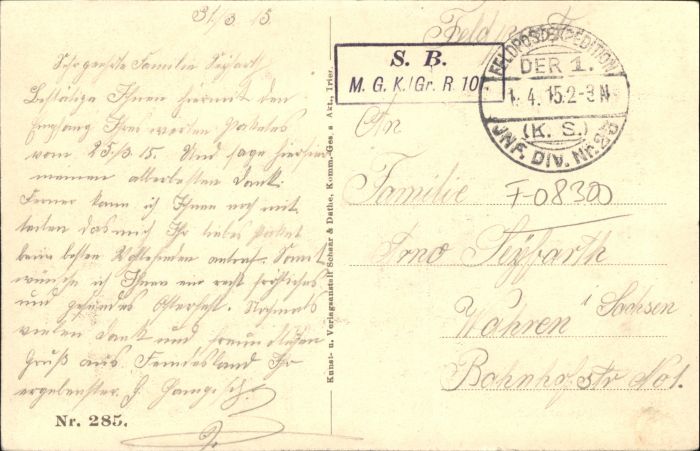 31/3. 15.
Sehr geehrte Familie Seyfart
Bestätige Ihnen hiermit den
Empfang Ihres werten Paketes
vom 25./3. 15. Und sage hierfür
meinen allerbesten Dank.
Ferner kann ich Ihnen noch mit
teilen das mich Ihr liebes Paket
beim besten Wohlsein antraf. Somit
wünsche ich Ihnen ein recht fröhliches
und gesundes Osterfest. Nochmals
vielen Dank und freundlichen
Gruß aus Feindesland Ihr
ergebenster
Nr. 285.
Kunst- u. Verlagsanstalt Schaar & Dathe, Komm.-Ges. a Akt., Trier.
Feldpost
S. B.
M. G. K./Gr. R. 10
FELDPOSTEXPEDITION
DER 1.
1. 4. 15. 2-3 N
(K. S.)
INF. DIV. Nr. 23
An
Familie
F-08300
Arno Seyfarth
Wahren i Sachsen
Bahnhofstr No 1.